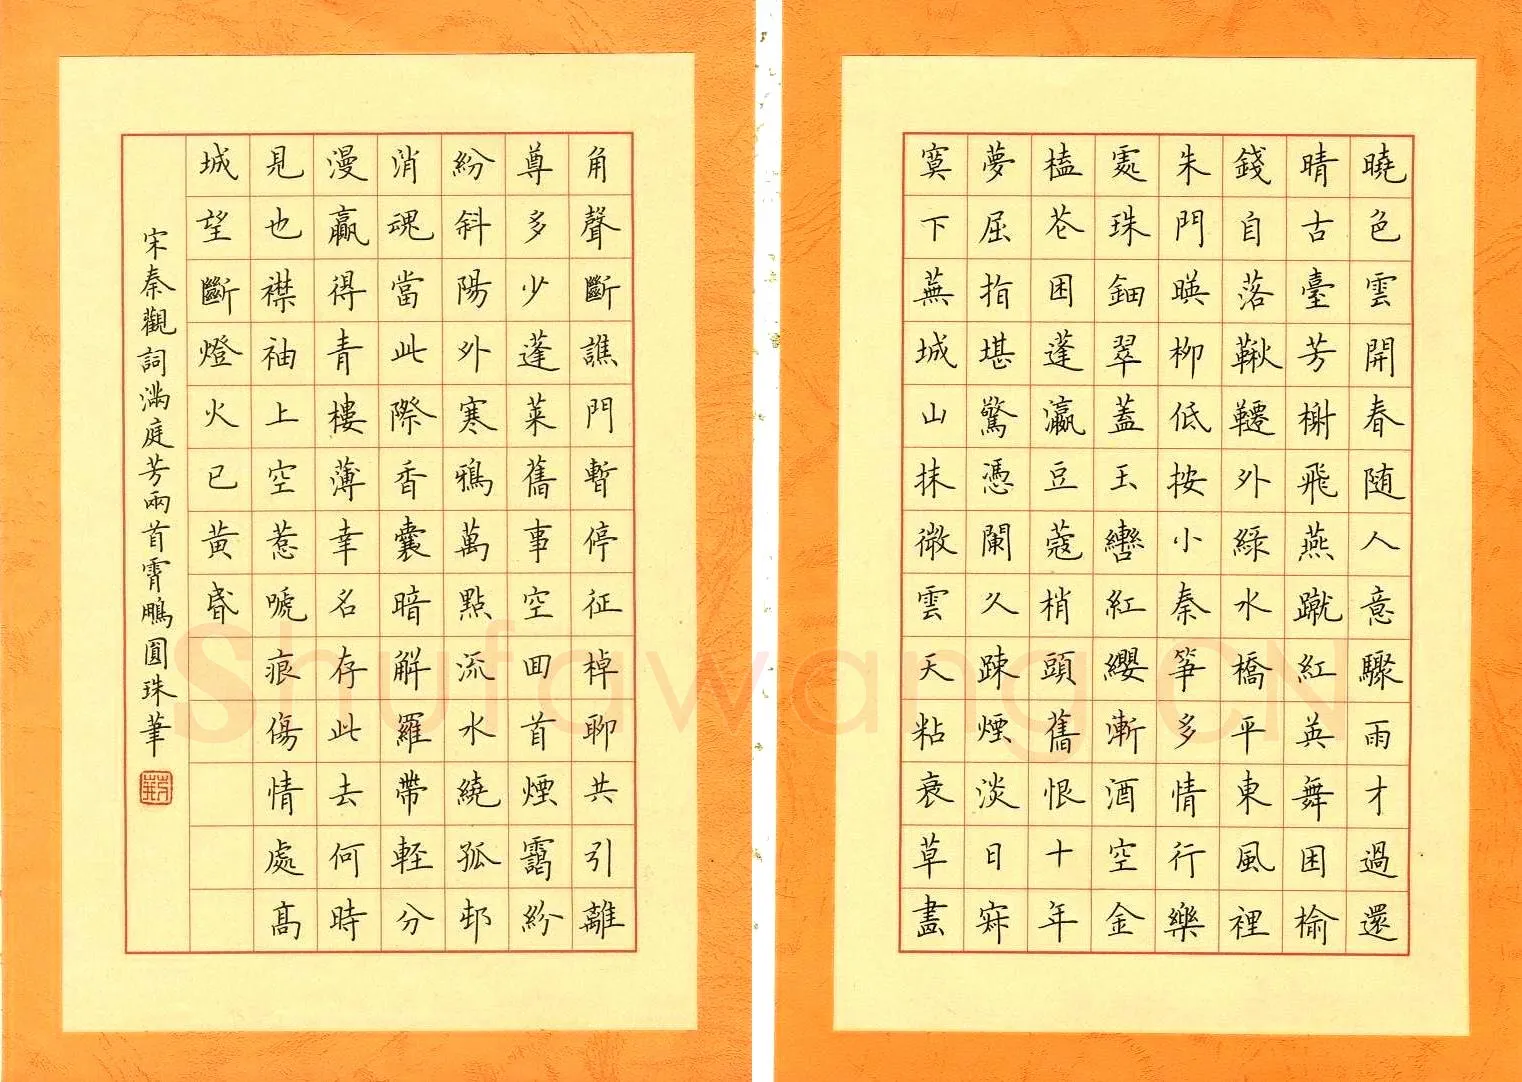 曉色雲開春随人意驟雨才過還
晴古臺芳榭飛燕蹴紅英舞困榆
錢自落鞦韆外綠水橋平東風裡
朱門暎柳低按小秦筝多情行樂
處珠鈿翠蓋玉轡紅纓漸酒空金
榼芲困蓬瀛豆蔻梢頭舊恨十年
夢屈指堪驚憑闌久踈煙淡日寂
寞下蕪城山抹微雲天粘衰草畫
角聲斷譙門暫停征棹聊共引離
尊多少蓬萊舊事空回首煙靄紛
紛斜陽外寒鴉萬點流水繞孤邨
消魂當此際香囊暗解羅帶軽分
漫贏得青樓薄幸名存此去何時
見也襟袖上空惹嗁痕傷情處高
城望斷燈火已黃昬
宋秦觀詞滿庭芳兩首霄鵬圓珠筆
Shufawang.CN